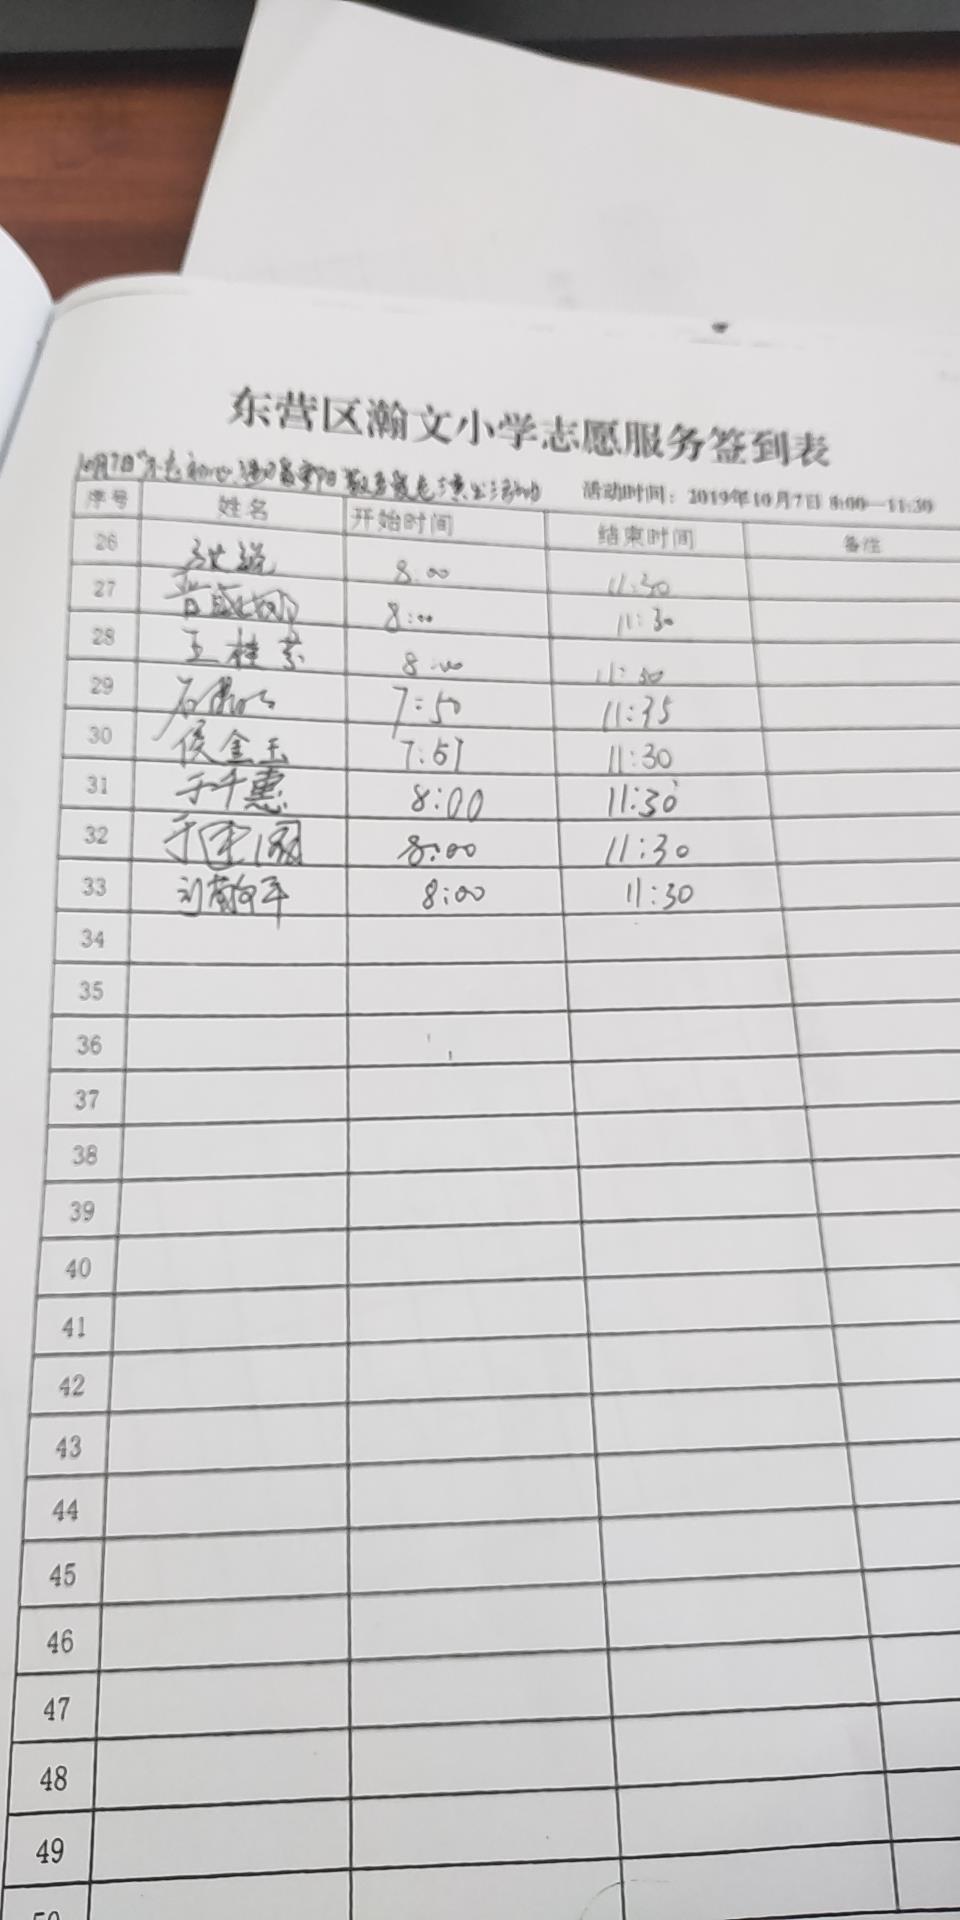 东营区瀚文小学志愿服务签到表
10月7日 活动时间：2019年10月7日 8:00—11:30
序号 姓名 开始时间 结束时间 备注
26 8:00 11:30
27 8:00 11:30
28 王桂芬 8:00 11:30
29 7:50 11:35
30 侯金玉 7:51 11:30
31 于千惠 8:00 11:30
32 于 8:00 11:30
33 刘敬军 8:00 11:30
34
35
36
37
38
39
40
41
42
43
44
45
46
47
48
49
50